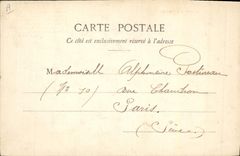 CARTE POSTALE
Ce côté est exclusivement réservé à l'adresse
Mademoiselle Alphonsine
(Nº 10) rue
Paris.
(Seine)